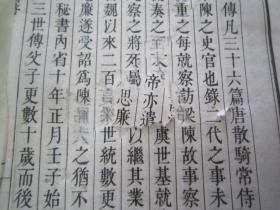 傳凡三十六篇唐散騎常侍
陳之史官也錄一代之事未
重之每就察訪梁陳故事察
奏之 帝亦遣虞世基就
察之將死屬思廉以繼其業
魏以來二百 世統數更
廉遂受詔為陳 之猶不
秘書內省十年正月壬子始
三世傳父子更數十歲而後